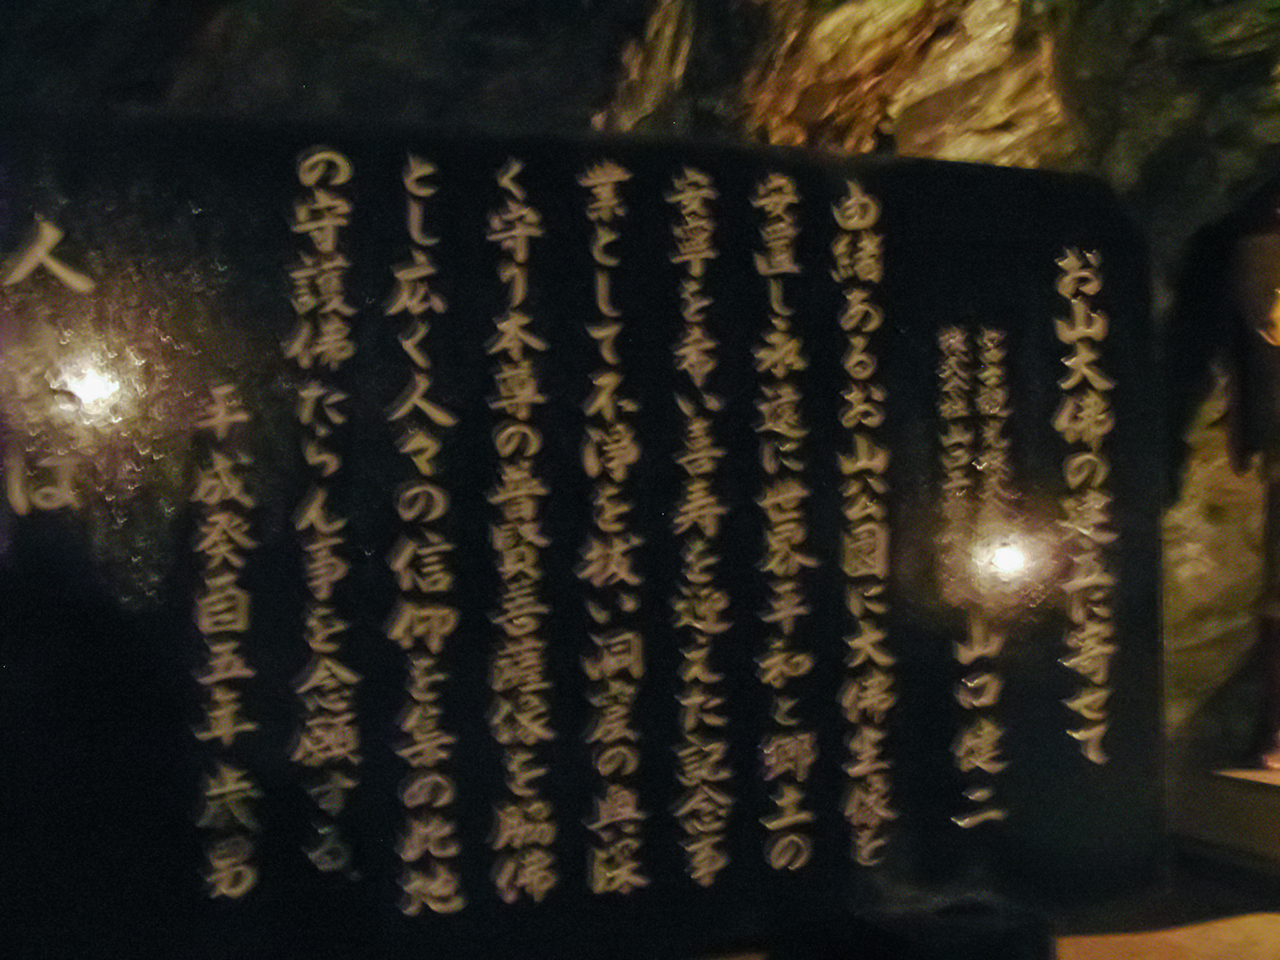 お山大佛の建立に寄せて
山口健二
由緒あるお山公園に大佛生像を
安置し永遠に世界平和と郷土の
安寧を希い喜寿を迎えた記念事
業としてて不浄を祓い洞窟の奥深
く守り本尊の普賢菩薩像を脇佛
とし広く人々の信仰を集め此地
の守護佛たらん事を念願する
平成癸酉五年 歩男
人は